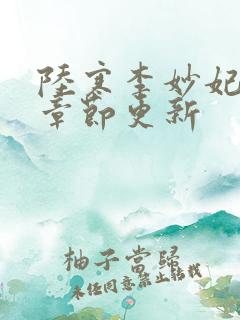 陸寒李妙妃
章節更新
柚子當歸
未經同意禁止轉載